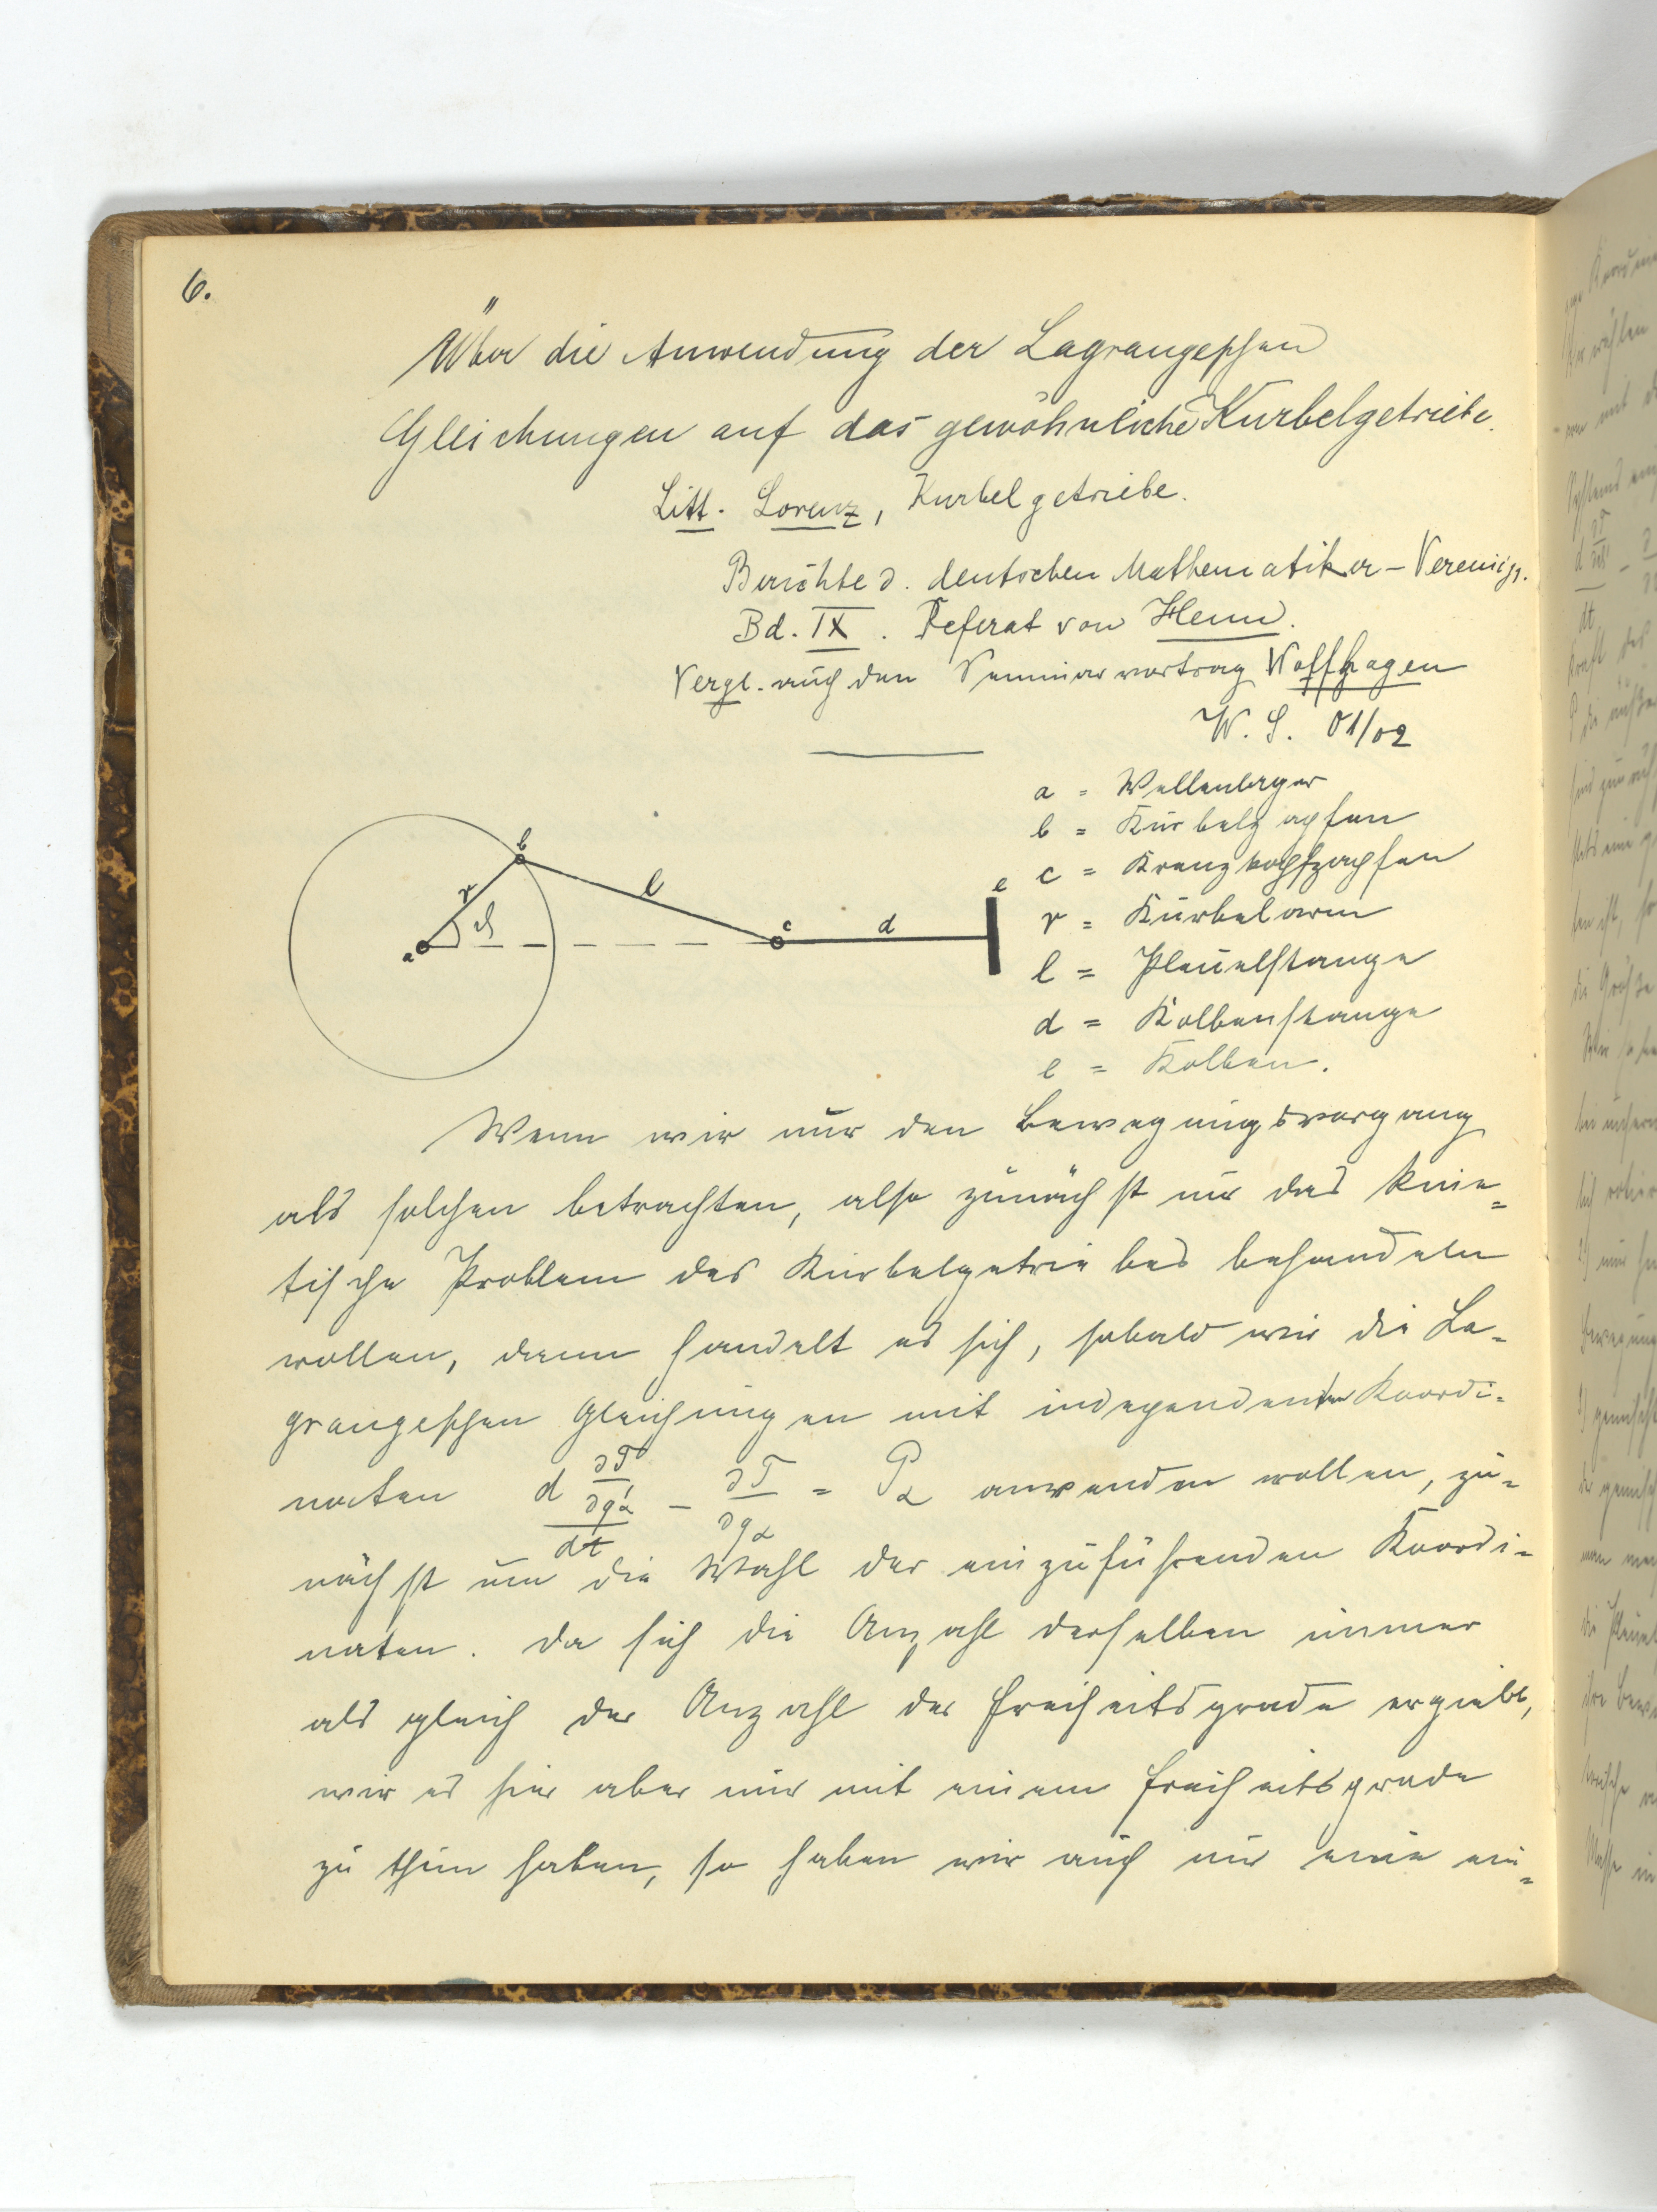 6.
Über die Anwendung der Lagrangeschen
Gleichungen auf das gewöhnliche Kurbelgetriebe.
Litt. Lorenz, Kurbelgetriebe.
Berichte d. deutschen Mathematiker-Vereinig.
Bd. IX. Referat von Heun.
Vergl. auch den Seminarvortrag Woffhagen
W. S. 01/02
a = Wellenlager
b = Kurbelzapfen
c = Kreuzkopfzapfen
r = Kurbelarm
l = Pleuelstange
d = Kolbenstange
e = Kolben.
a r ϑ b l c d e
Wenn wir nur den Bewegungsvorgang
als solchen betrachten, also zunächst nur das kine=
tische Problem des Kurbelgetriebes behandeln
wollen, dann handelt es sich, sobald wir die La=
grangeschen Gleichungen mit independenten Koordi=
naten d ∂T/∂q'α / dt − ∂T/∂qα = Pα anwenden wollen, zu=
nächst um die Wahl der einzuführenden Koordi=
naten. Da sich die Anzahl derselben immer
als gleich der Anzahl der Freiheitsgrade ergiebt,
wir es hier aber nur mit einem Freiheitsgrade
zu thun haben, so haben wir auch nur eine ein=